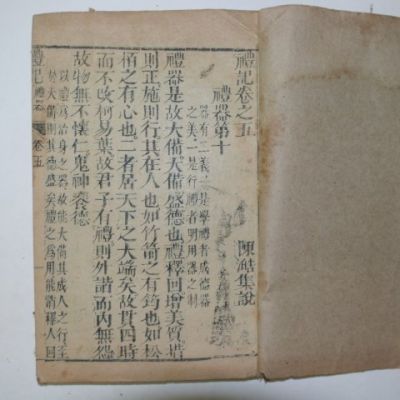 禮記卷之五
禮器第十　陳澔集說
器有二義一是學禮者成德器
之美一是行禮者明用器之制
禮器是故大備大備盛德也禮釋回增美質措
則正施則行其在人也如竹箭之有筠也如松
栢之有心也二者居天下之大端矣故貫四時
而不改柯易葉故君子有禮則外諧而內無怨
故物無不懷仁鬼神饗德
以禮為治身之器故能大備其成人之行至
於大備則其德盛矣禮之為用能消釋人回
禮記 卷五